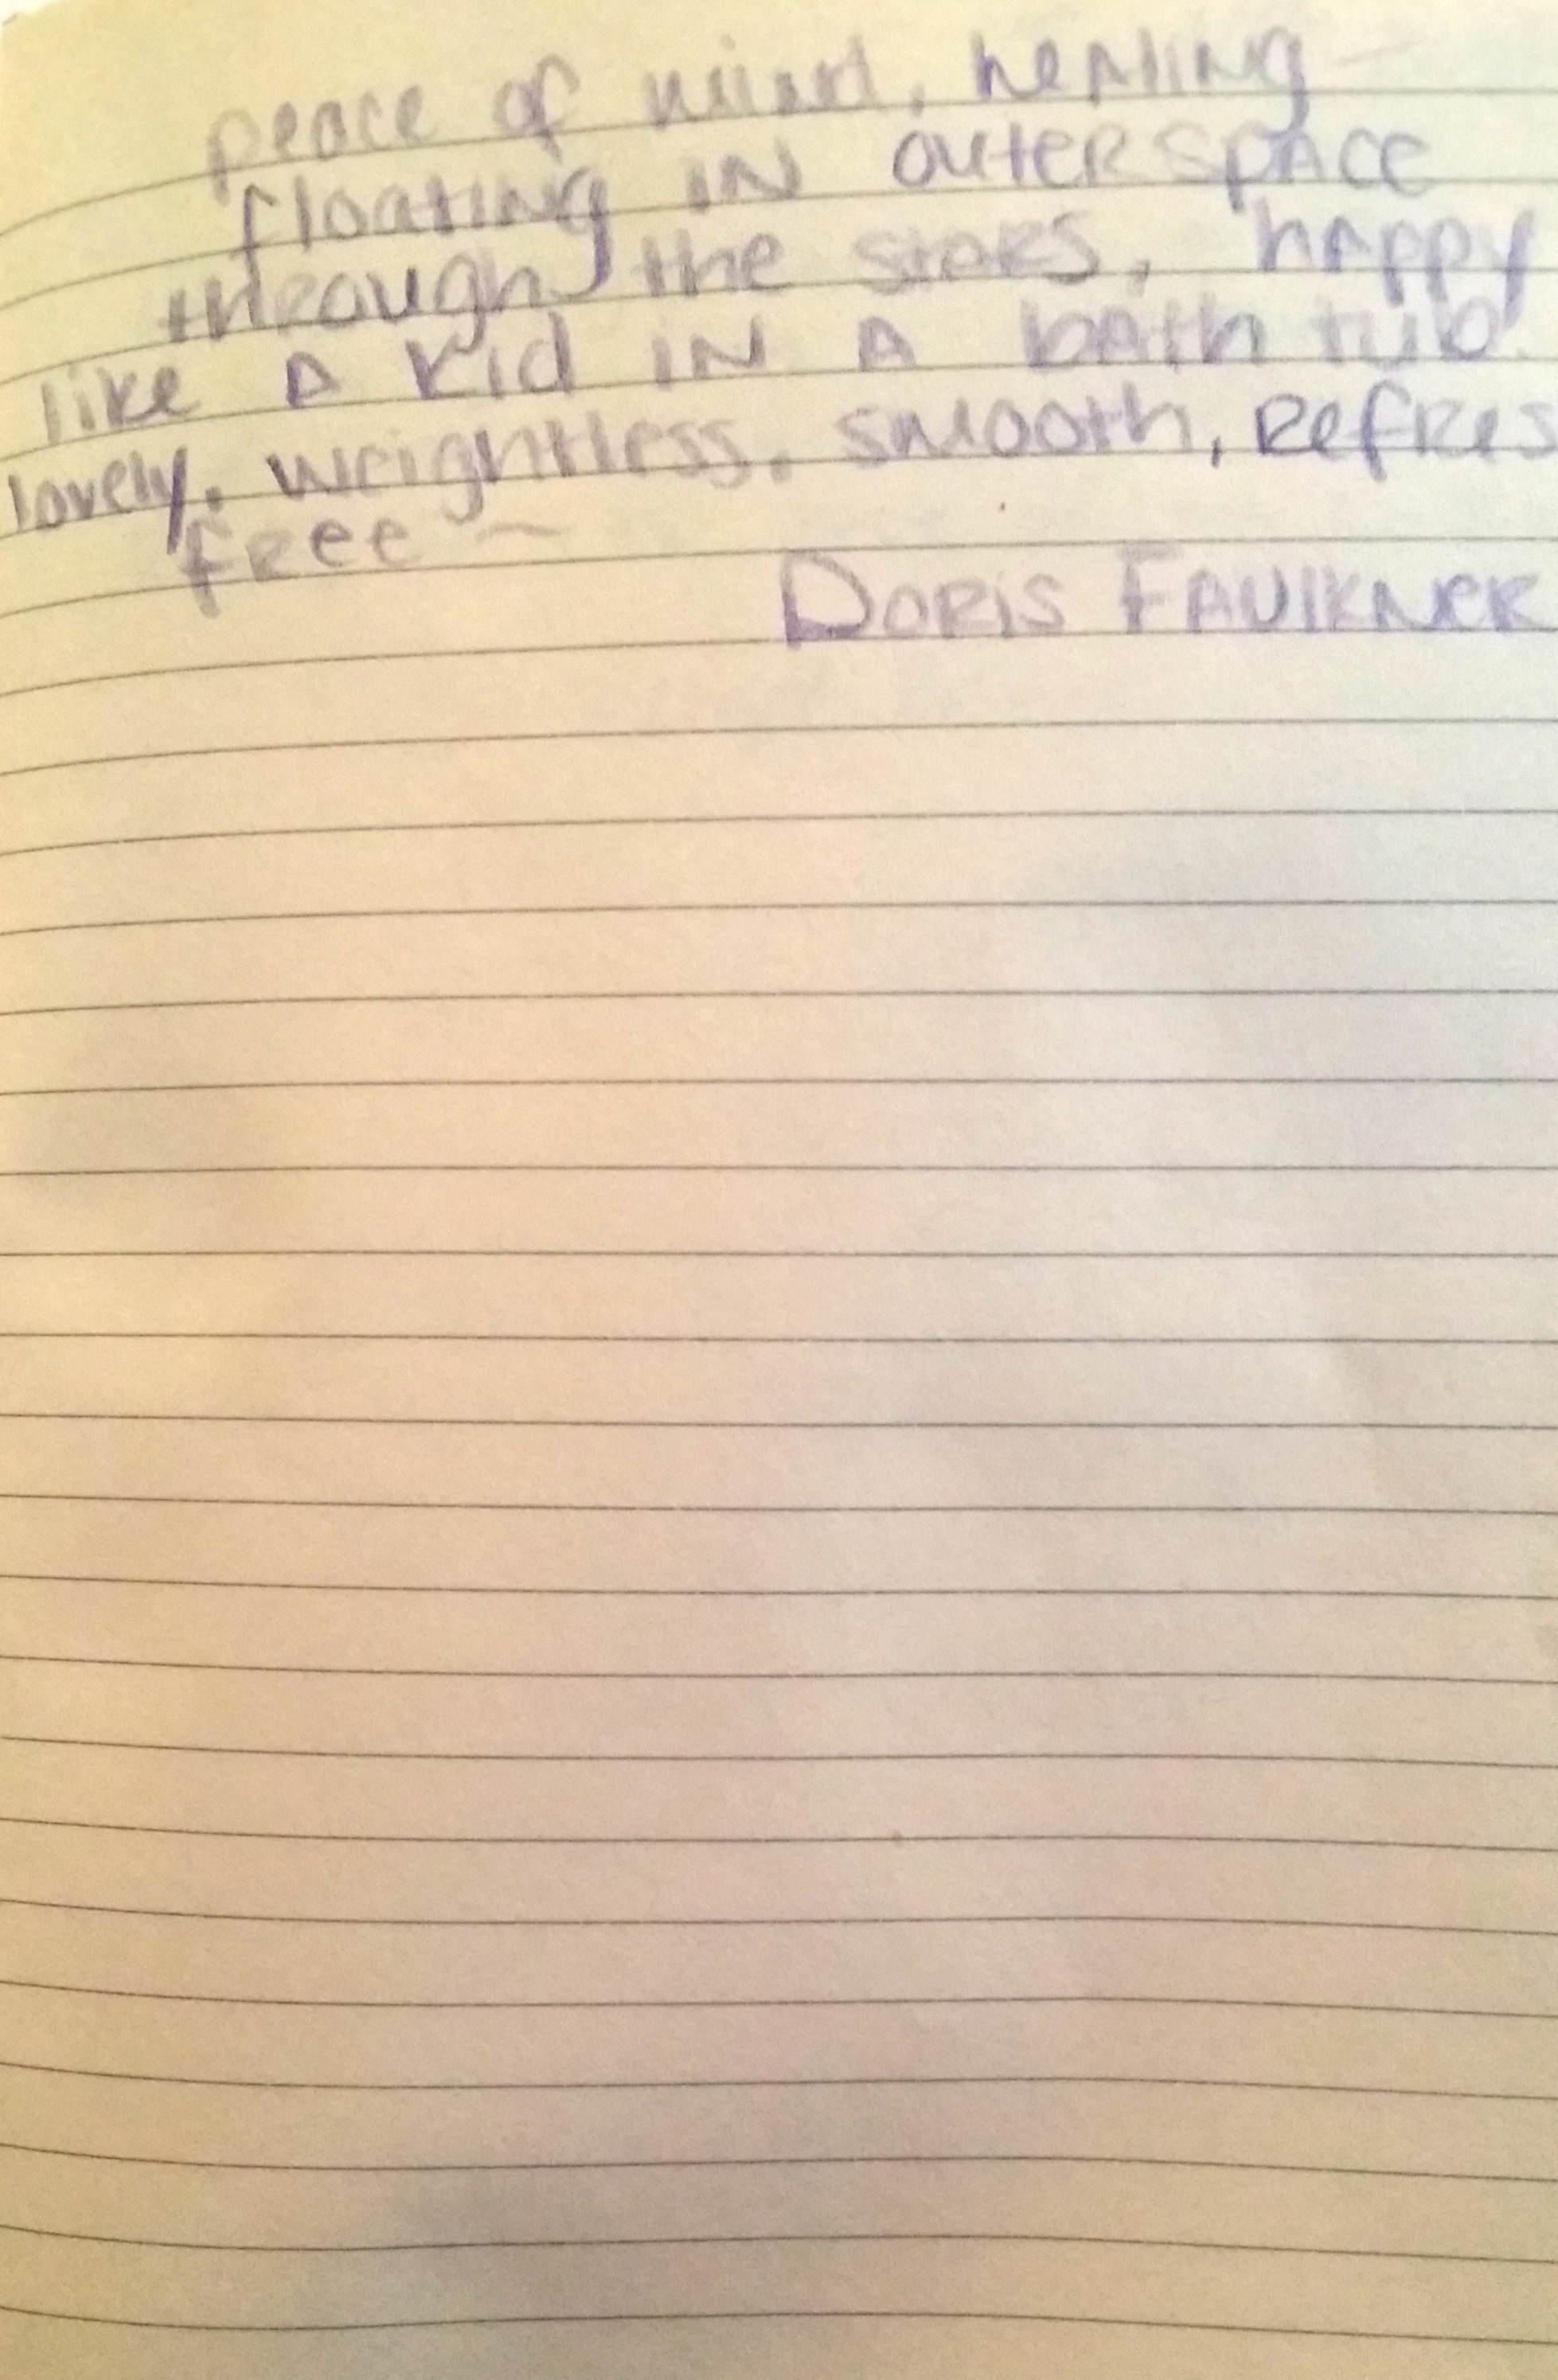 peace of mind, healing –
floating in outerspace
through the stars, happy
like a kid in a bath tub.
lovely, weightless, smooth, Refres
free ~
Doris Faulkner